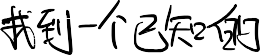 找到一个已知的